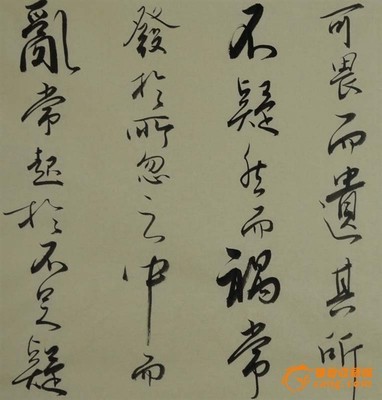 可畏而遺其所
不疑然而禍常
發於所忽之中而
亂常起於不足疑